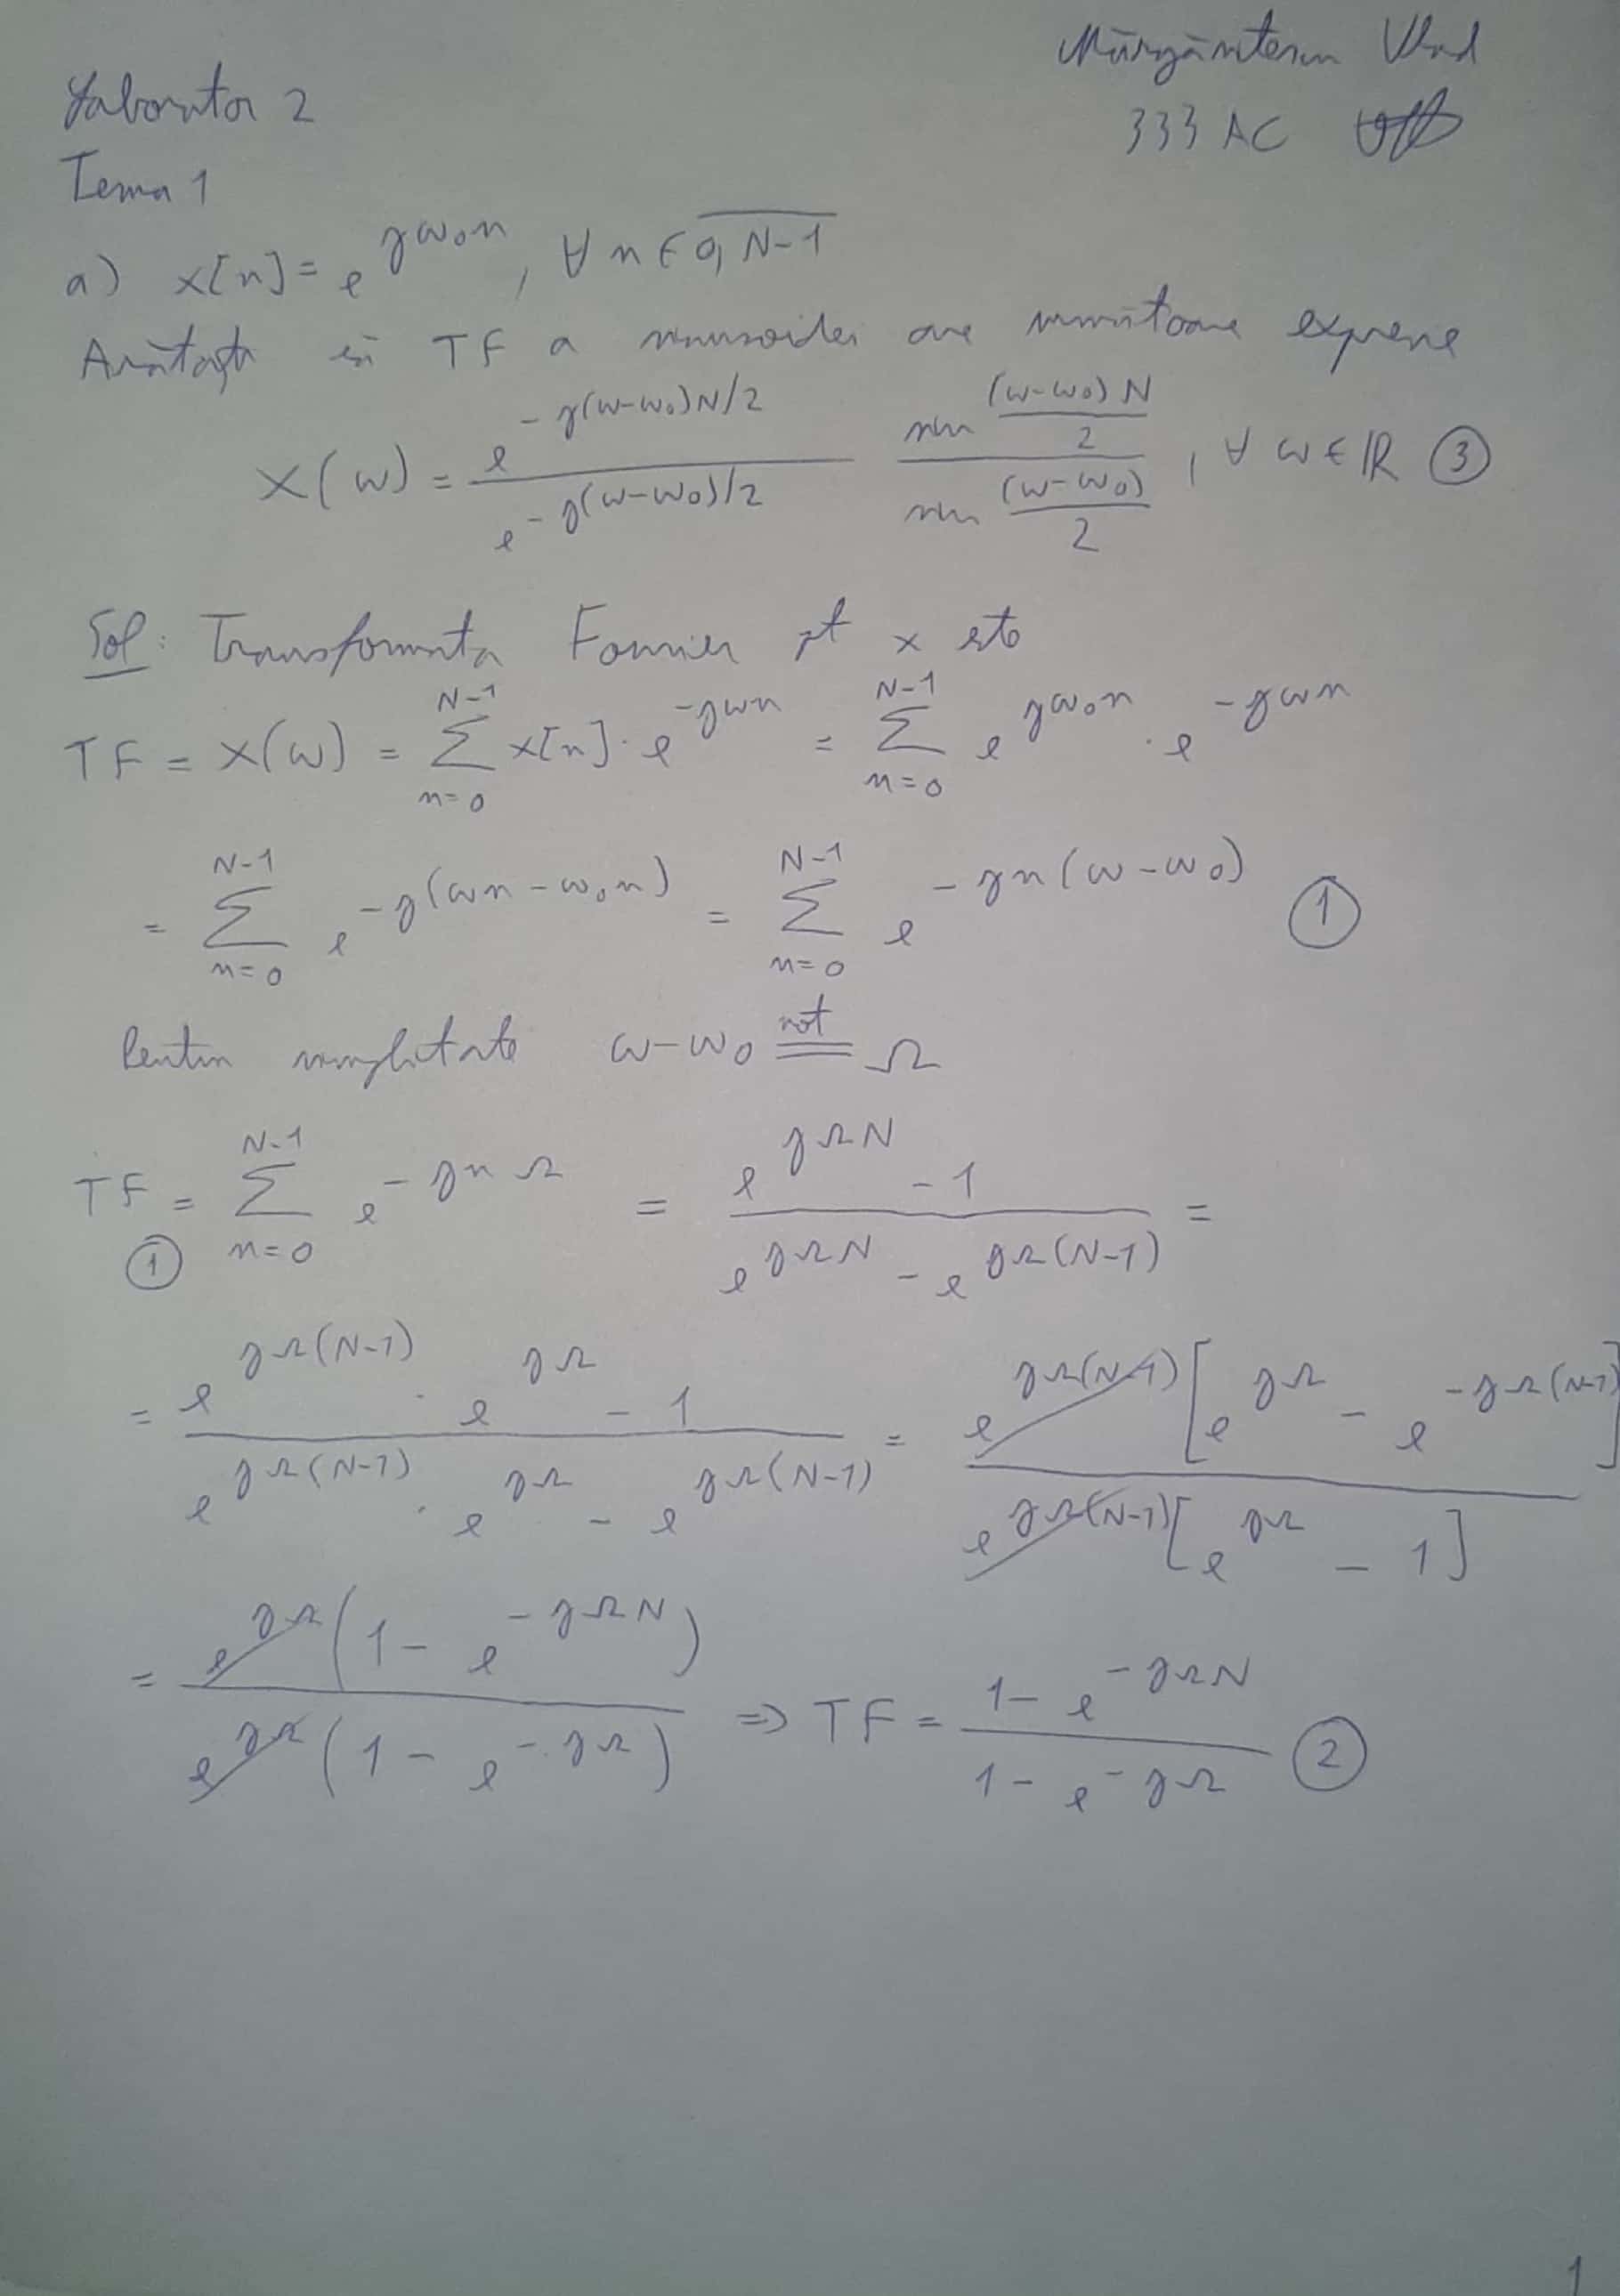 Mărgăritescu Vlad
333 AC
Laborator 2
Tema 1
a) x[n] = e^{jω₀n}, ∀ n ∈ \overline{0, N-1}
Arătați că TF a sinusoidei are următoarea expresie
X(ω) = \frac{e^{-j(ω-ω₀)N/2}}{e^{-j(ω-ω₀)/2}} \frac{sin \frac{(ω-ω₀)N}{2}}{sin \frac{(ω-ω₀)}{2}}, ∀ ω ∈ ℝ ③
Sol: Transformata Fourier pt x este
TF = X(ω) = \sum_{n=0}^{N-1} x[n] · e^{-jωn} = \sum_{n=0}^{N-1} e^{jω₀n} · e^{-jωn}
= \sum_{n=0}^{N-1} e^{-j(ωn-ω₀n)} = \sum_{n=0}^{N-1} e^{-jn(ω-ω₀)} ①
Pentru simplitate ω-ω₀ \overset{not}{=} Ω
TF \underset{①}{=} \sum_{n=0}^{N-1} e^{-jnΩ} = \frac{e^{jΩN} - 1}{e^{jΩN} - e^{jΩ(N-1)}} =
= \frac{e^{jΩ(N-1)} · e^{jΩ} - 1}{e^{jΩ(N-1)} · e^{jΩ} - e^{jΩ(N-1)}} = \frac{e^{jΩ(N-1)} [e^{jΩ} - e^{-jΩ(N-1)}]}{e^{jΩ(N-1)} [e^{jΩ} - 1]}
= \frac{e^{jΩ} (1 - e^{-jΩN})}{e^{jΩ} (1 - e^{-jΩ})} ⇒ TF = \frac{1 - e^{-jΩN}}{1 - e^{-jΩ}} ②
1